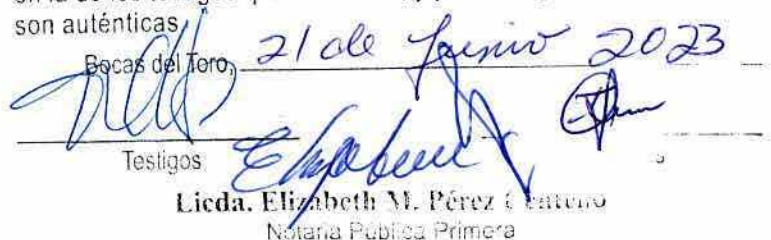 son auténticas
Bocas del Toro, 21 de Junio 2023
Testigos
Licda. Elizabeth M. Pérez
Notaria Pública Primera